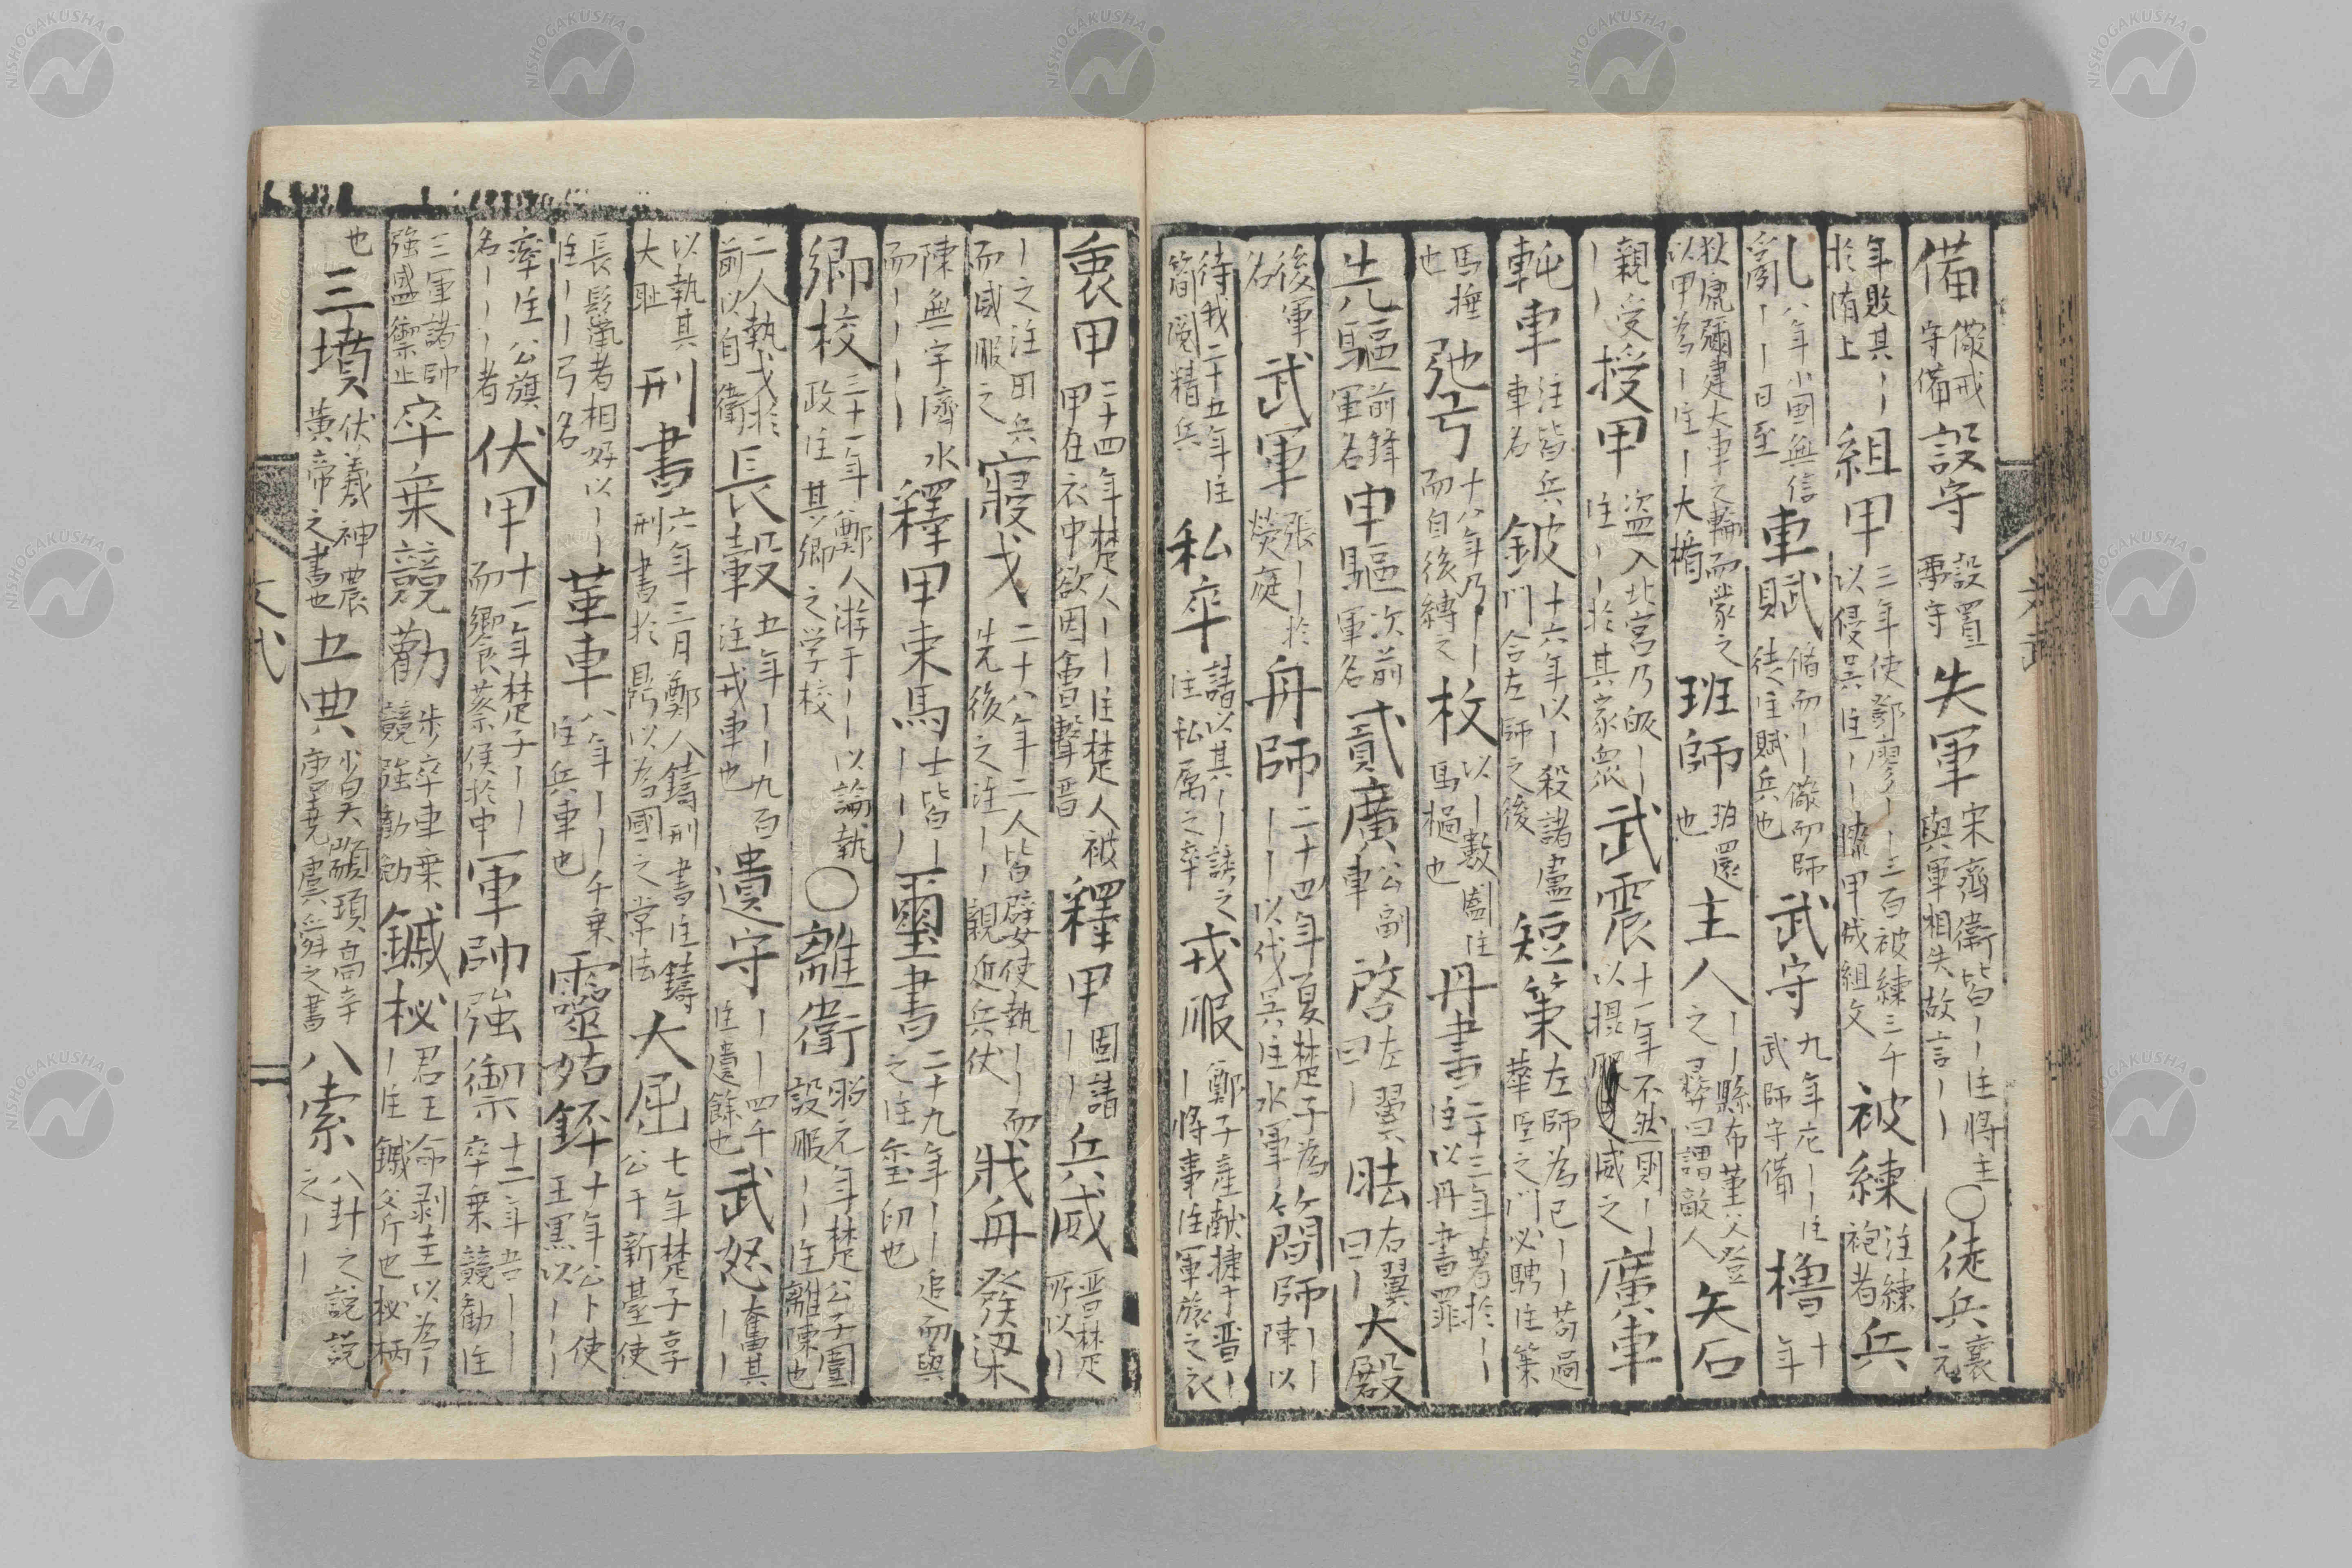 備儆戒守備設守設置兩守失軍宋齊衛皆丨丨注將主與軍相失故言丨丨〇徒兵襄元
年敗其丨於洧上組甲三年使鄧廖丨丨三百被練三千以侵吳注丨丨漆甲成組文被練注練袍者兵
乱八年小国無信兵乱丨丨日至車賦脩而丨丨儆而師徒注賦兵也武守九年庀丨丨注武師守備櫓十年
狄虒彌建大車之輪而蒙之以甲為丨注丨大楯班師班還也主人丨丨縣布堇父登之彛曰謂敵人矢石
親受丨丨授甲盜入北宮乃皈丨丨注丨丨於其家衆武震十一年不然則丨丨以摂威之廣車
軘車注皆兵車名鈹十六年以丨殺諸盧門合左師之後短策左師為己丨丨苟過華臣之門必騁注策
馬撫也弛弓十八年乃丨丨而自後縛之枚以丨數闔注馬檛也丹書二十三年著於丨丨注以丹書罪
先驅前鋒軍名申驅次前軍名貳廣公副車啓左翼曰丨胠右翼曰丨大殿
後軍名武軍張丨丨於熒庭舟師二十四年夏楚子為丨丨以伐吳注水軍簡師丨丨陳以
待我二十五年注簡閱精兵私卒請以其丨丨誘之注私属之卒戎服鄭子産献捷于晋丨丨將事注軍旅之衣
衷甲二十四年楚人丨丨注楚人被甲在衣中欲因會擊晋釋甲固請丨丨兵威晋楚所以丨
丨之注田兵而威服之寢戈二十八年二人皆嬖使執丨丨而先後之注丨丨親近兵仗戕舟發梁
陳無宇濟水而丨丨丨丨釋甲束馬士皆丨丨丨丨璽書二十九年丨丨追而與之注璽印也
鄉校三十一年鄭人游于丨丨以論執政注其鄉之学校〇離衛昭元年楚公子圍設服丨丨注離陳也
二人執戈於前以自衛長轂五年丨丨九百注戎車也遺守丨丨四千注遺餘也武怒奮其丨丨
以執其大耻刑書六年三月鄭人鑄刑書注鑄刑書於鼎以為國之常法大屈七年楚子享公于新䑓使
長鬣者相好以丨丨注丨丨弓名革車八年丨丨千乗注兵車也靈姑銔十年公卜使王黒以丨丨丨
率注公旗名丨丨丨者伏甲十一年楚子丨丨而饗蔡侯於申軍帥強禦十二年吾丨丨卒乗競勸注
三軍諸帥強盛禦止卒乗競勸歩卒車乗競強勸勉鏚柲君王命剥圭以為丨丨注鏚斧也柲柄
也三墳伏羲神農黄帝之書也五典少昊顓頊高辛唐堯虞舜之書八索八卦之説説之丨丨